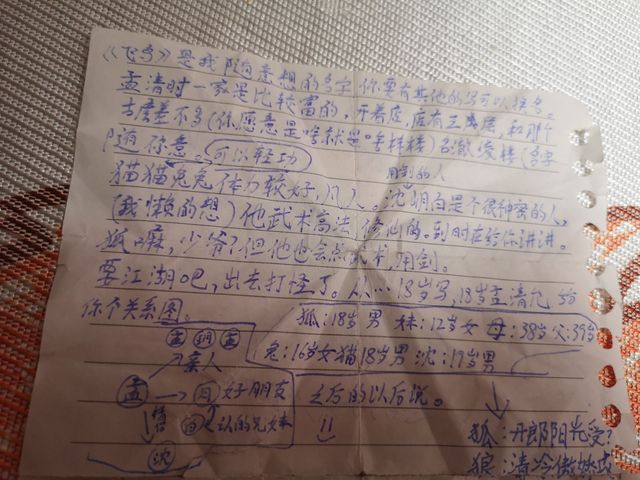 《飞鸟》是我随意想的名字你要有其他的写可以换名。
孟清时一家是比较富的,开着店,店有三层,和那个
差不多(你愿意是啥就是啥样楼)名澈俊楼(名字
随你意。可以轻功
用剑的人
猫猫兔兔体力较好,凡人。沈明白是个很神密的人,
(我懒的想)他武术高法修仙的。到时在给你讲讲。
狐嘛,少爷?但他也会点武术,用剑。
要江湖吧,出去打怪了。从…18岁写,18岁孟清允
你个关系图。
狐:18岁男 妹:12岁女 母:38岁父:39岁
兔:16岁女猫18岁男 沈:19岁男
亲人
孟→月好朋友
认的兄妹
之后的以后说。
沈
狐:丹郎阳光受?
狼:清冷傲娇攻